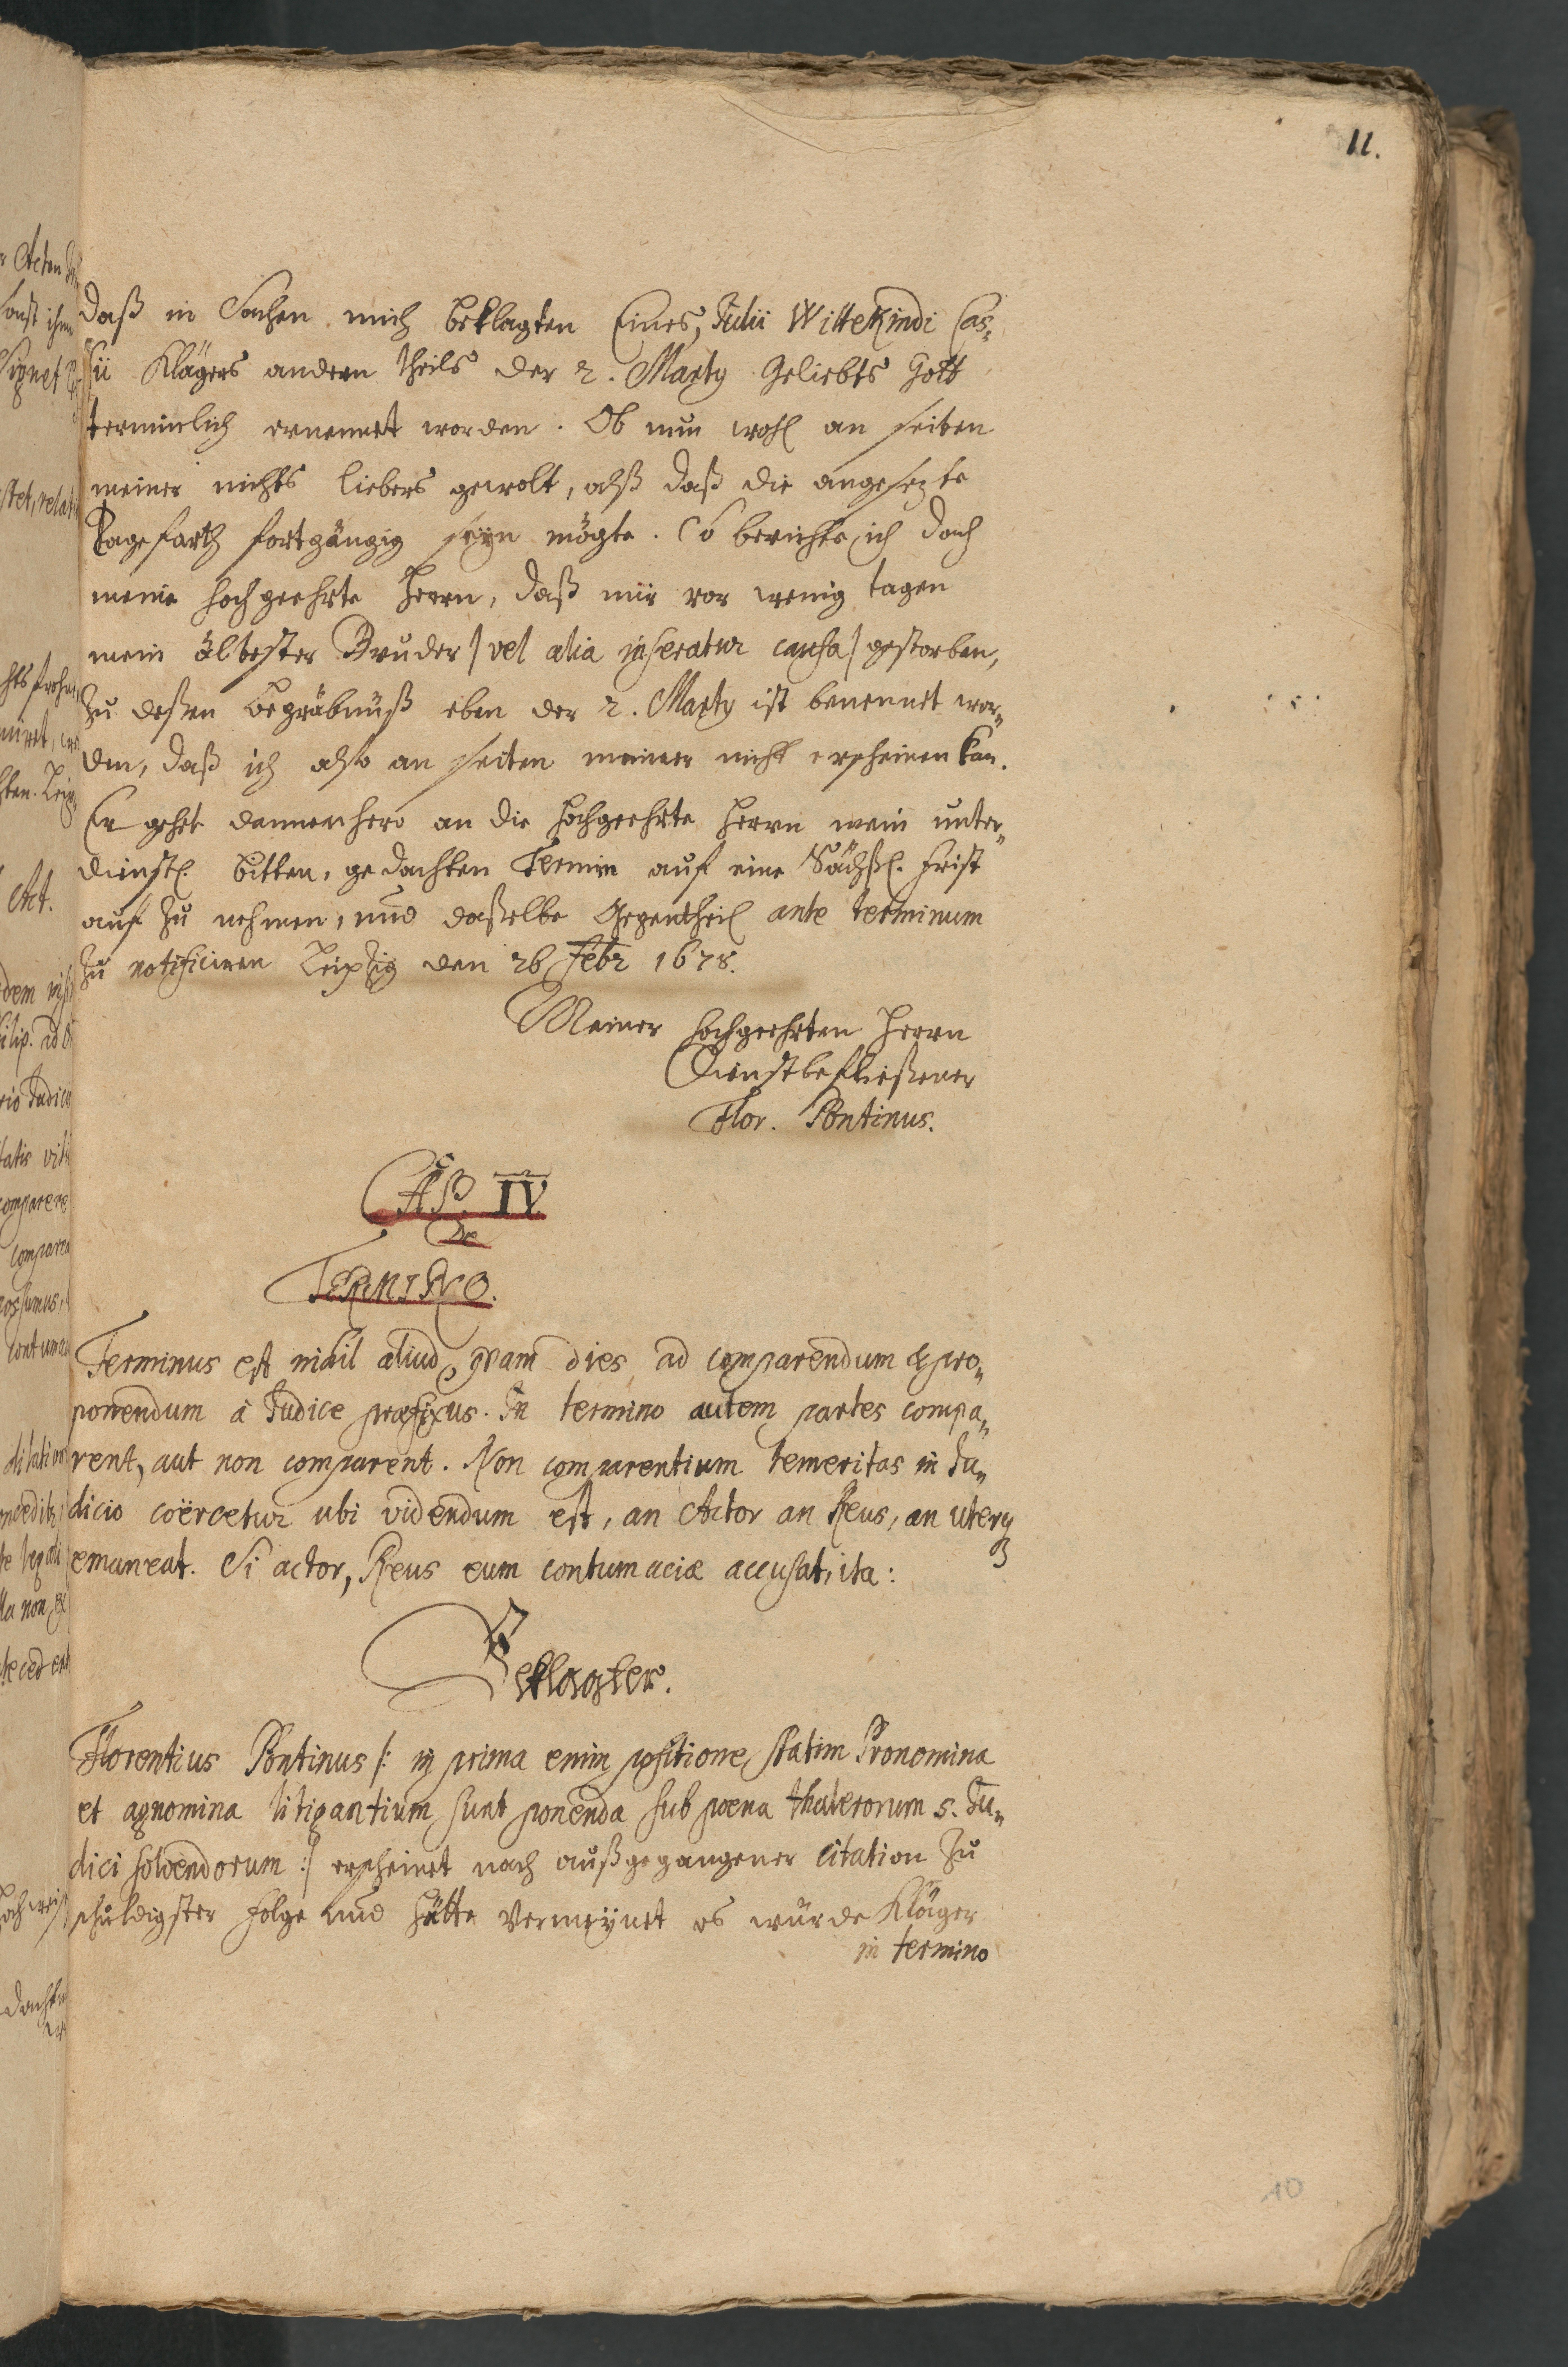 11.
daß in Sachen mich beklagten Eines, Julii Wittekindi Cas-
sii Klägers andern theils der 2. Marty geliebts Gott
terminlich ernennet worden. Ob nun wohl an seiten
meiner nichts liebers gewolt, alß daß die angesezte
Tagefarth fortgängig seyn mögte. So berichte ich doch
meine hochgeehrte Herrn, daß mir vor wenig tagen
mein ältester Bruder / vel alia inseratur causa / gestorben,
zu deßen begräbnüß eben der 2. Marty ist benennet wor-
den, daß ich also an seiten meiner nicht erscheinen kan.
Er gehet dannenhero an die hochgeehrte Herrn mein unter-
dienstl. bitten, gedachten Termin auf eine Sächßl. frist
auf zu nehmen, und daßelbe Gegentheil ante terminum
zu notificiren Leipzig den 26 Febr 1678.
Meiner hochgeehrten Herrn
Dienstbefließener
Flor. Pontinus.
CAP. IV.
De
TERMINO.
Terminus est nihil aliud, qvam dies ad comparendum & pro-
ponendum à Judice præfixus. In termino autem partes compa-
rent, aut non comparent. Non comparentium temeritas in Ju-
dicio coërcetur ubi videndum est, an Actor an Reus, an uterq3
emaneat. Si actor, Reus eum contumaciæ accusat, ita:
Beklagter.
Florentius Pontinus /: in prima enim positione statim Pronomina
et agnomina litigantium sunt ponenda sub poena thalerorum 5. Ju-
dici solvendorum :/ erscheinet nach außgegangener citation zu
schuldigster folge und hätte vermeynet es würde Kläger
in termino
10